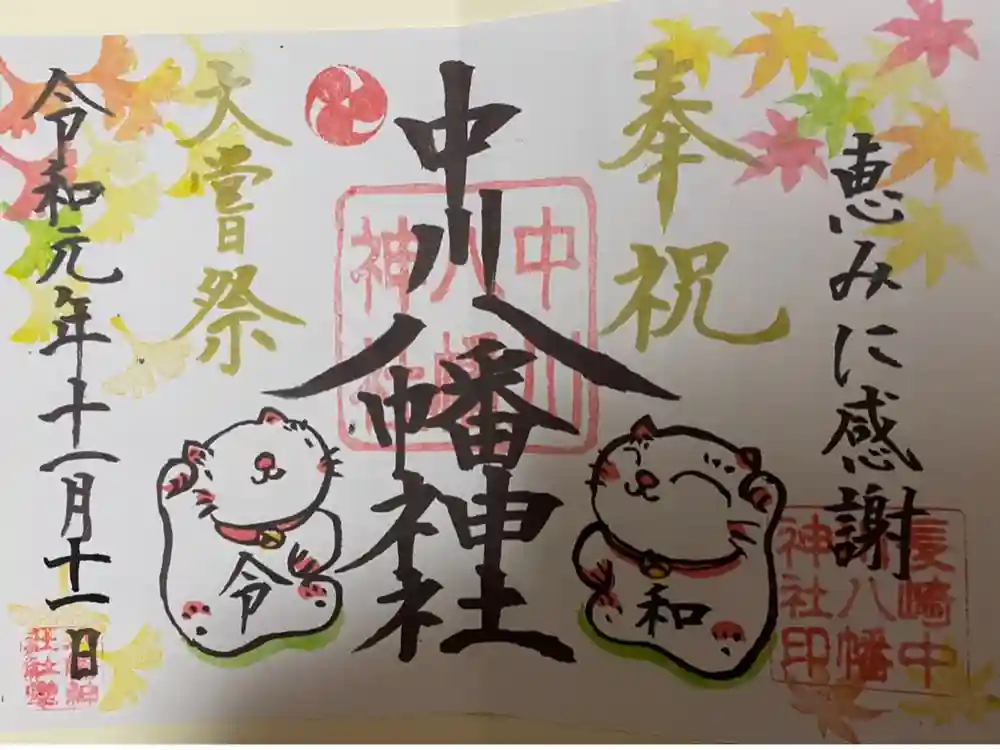 恵みに感謝
奉祝
中川八幡神社
大嘗祭
令和元年十一月十一日
中川
八幡
神社
令
和
長崎中
川八幡
神社印